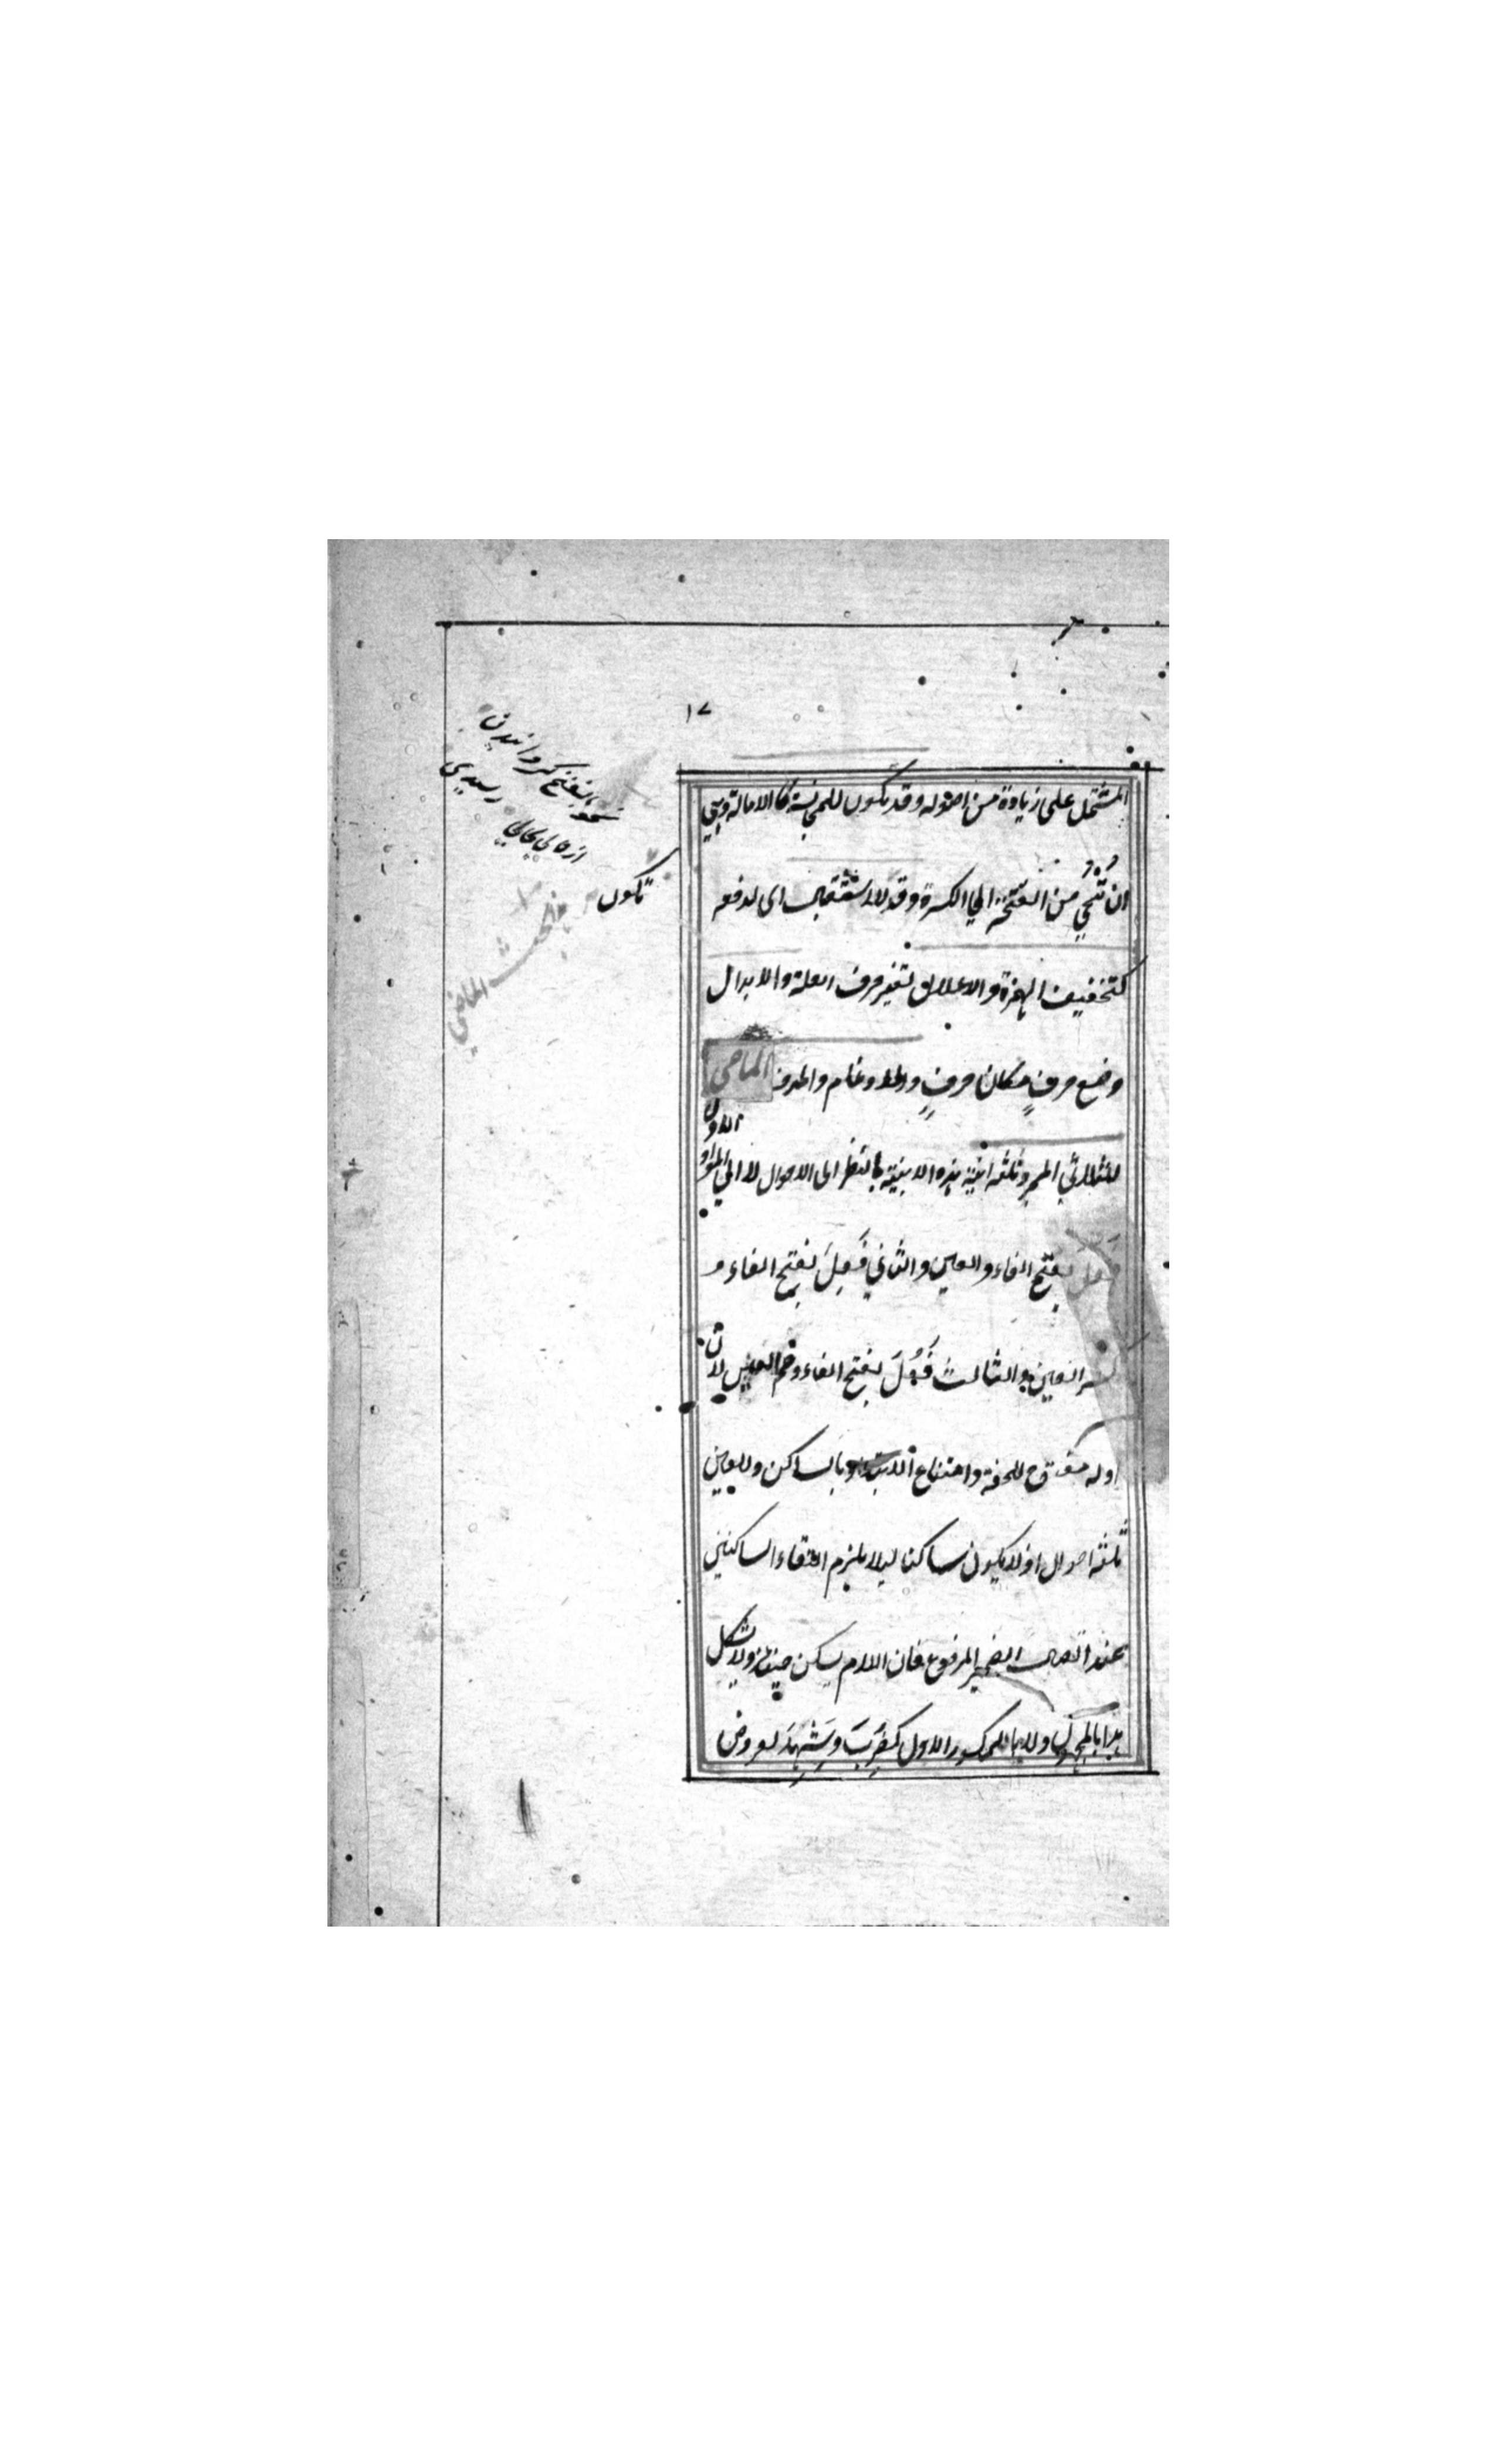 ١٧
المشتمل على زيادة من اصوله وقد يكون للمجانسة كالامالة وهي
ان تنحي من الفتحة الي الكسرة وقد للاستثقال اى لدفعه
كتخفيف الهمزة والاعلال تغير حرف العلة والابدال
وضع حرف مكان حرف والادغام والحذف الماضي
للثلاثي المجرد ثلثة ابنية هذه الابنية بالنظر الى الاصول لا الي المزاد
الاول
فعل بفتح الفاء والعين والثاني فَعِلَ بفتح الفاء و
كسر العين والثالث فَعُلَ بفتح الفاء وضم العين لان
اوله مفتوح للخفة وامتناع الابتداء بالساكن وللعين
ثلثة احوال اذ لا يكون ساكنا ليلا يلزم التقاء الساكنين
عند اتصال الضمير المرفوع فان اللام يسكن حينئذ ولا يشكل
هذا بالمجهول ولا بالمكسور الاول كضُرِبَ وشِهِدَ لعروض
نحو بفتح
تكون
الماضي